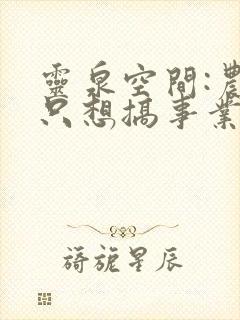 靈泉空間:農
只想搞事業
旖旎星辰